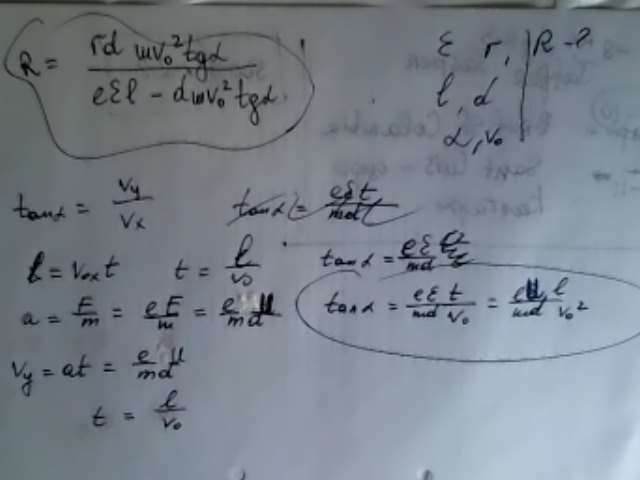 R = rd mv₀² tgα / (eƐl − dmv₀² tgα)
Ɛ r, | R - ?
l, d
α, v₀
tanα = Vy / Vx
tanα = eƐt / md
l = v₀ₓt t = l / v₀
tanα = eƐ / md
a = F / m = eE / m = eU / md
tanα = eƐ t / md v₀ = eU l / md v₀²
Vy = at = eU / md
t = l / v₀